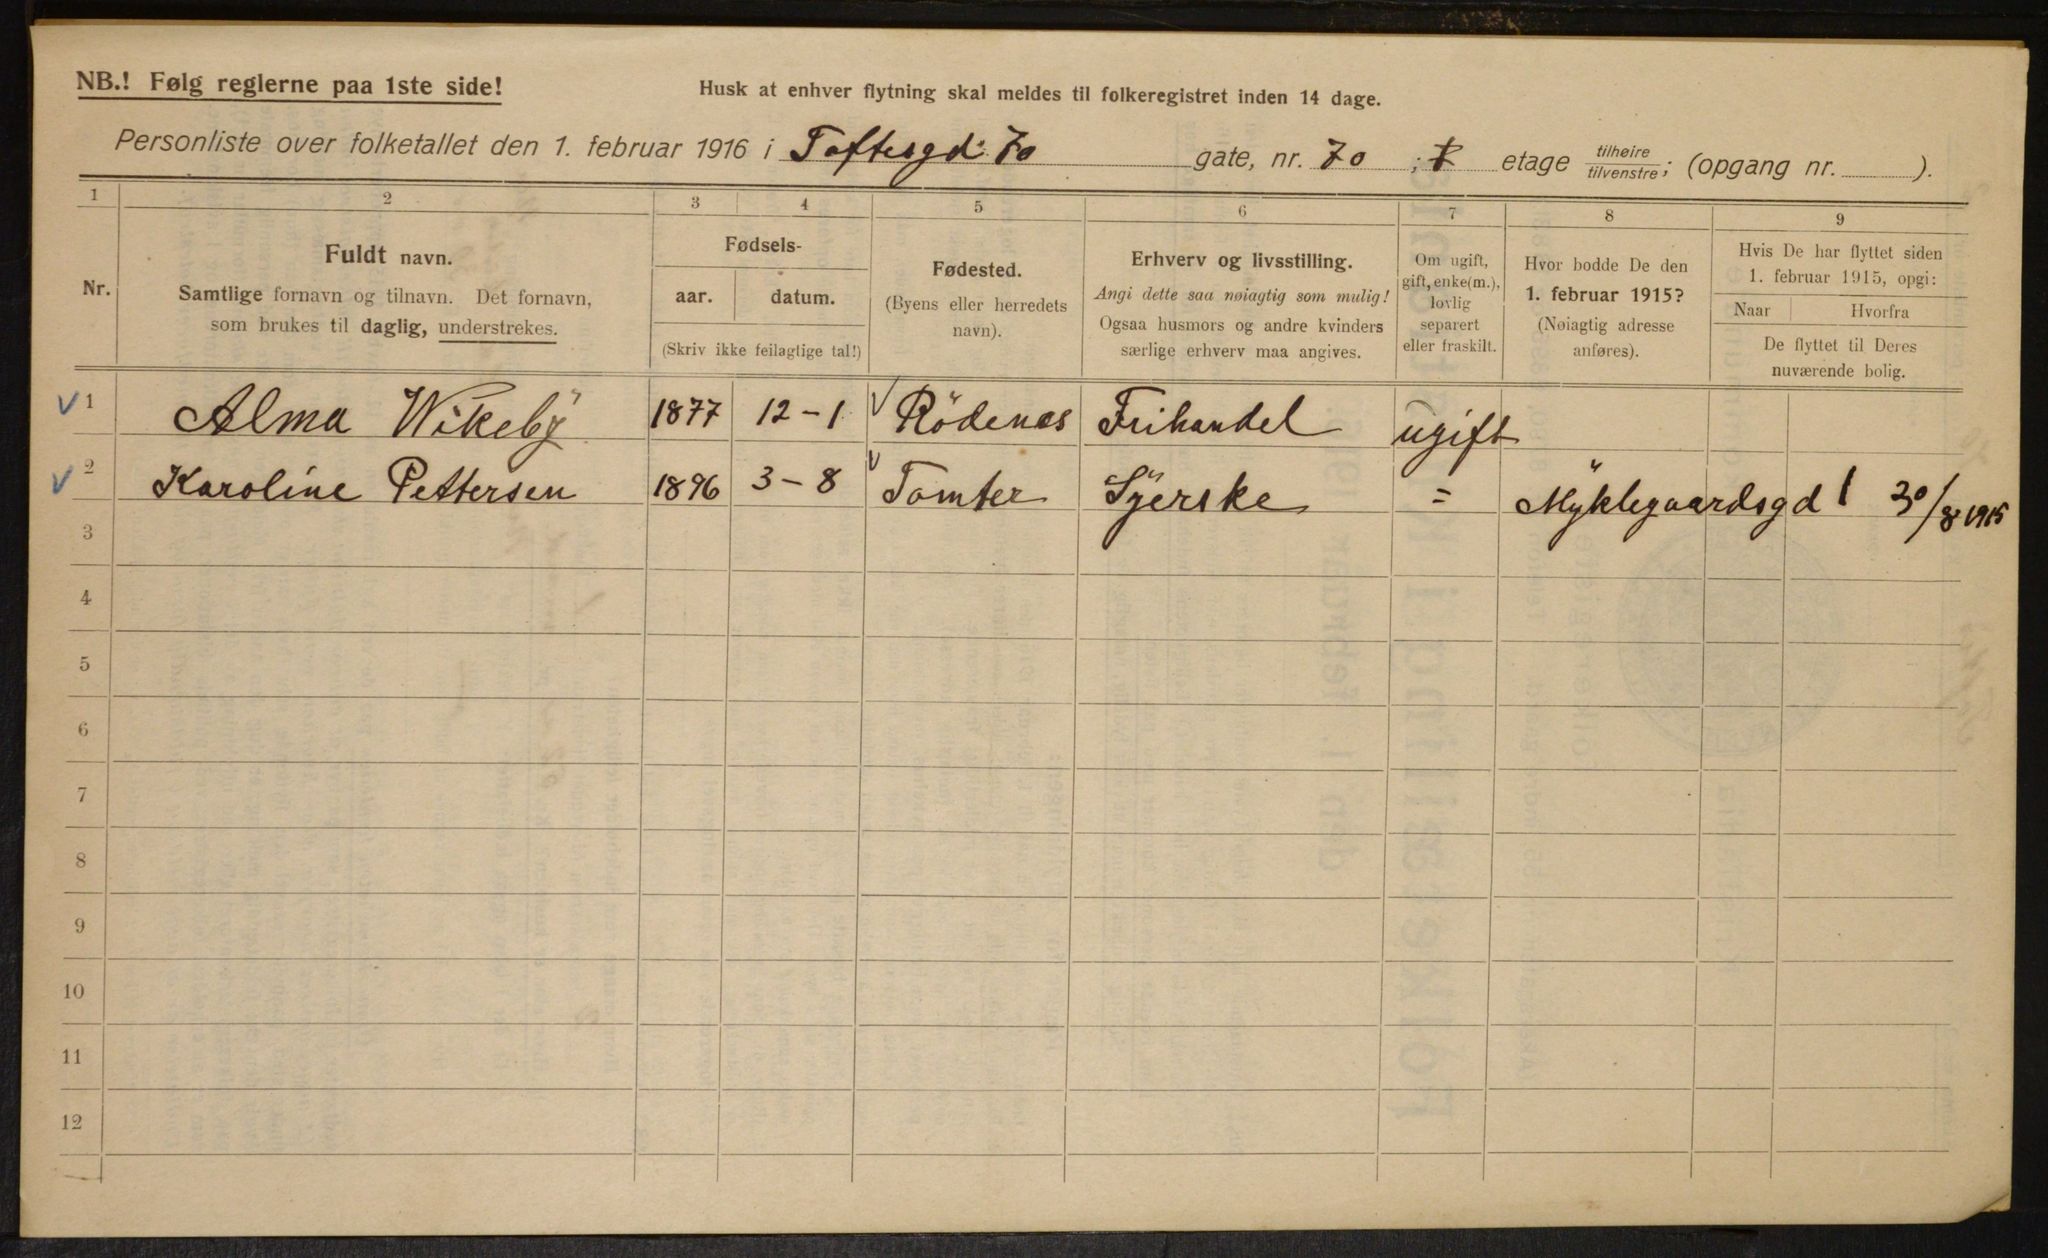 NB.! Følg reglerne paa 1ste side!
Husk at enhver flytning skal meldes til folkeregistret inden 14 dage.
Personliste over folketallet den 1. februar 1916 i Toftesgd. 70 gate, nr. 70 ; 1 etage tilhøire/tilvenstre; (opgang nr. ).
1 2 3 4 5 6 7 8 9
Nr.
Fuldt navn.
Samtlige fornavn og tilnavn. Det fornavn,
som brukes til daglig, understrekes.
Fødsels-
aar. datum.
(Skriv ikke feilagtige tal!)
Fødested.
(Byens eller herredets
navn).
Erhverv og livsstilling.
Angi dette saa nøiagtig som mulig!
Ogsaa husmors og andre kvinders
særlige erhverv maa angives.
Om ugift,
gift, enke(m.),
lovlig
separert
eller fraskilt.
Hvor bodde De den
1. februar 1915?
(Nøiagtig adresse
anføres).
Hvis De har flyttet siden
1. februar 1915, opgi:
Naar Hvorfra
De flyttet til Deres
nuværende bolig.
1 Alma Wikeby 1877 12-1 Rödenes Frihandel ugift
2 Karoline Pettersen 1896 3-8 Tomter Syerske = Myklegaardsgd 1 30/8 1915
3
4
5
6
7
8
9
10
11
12